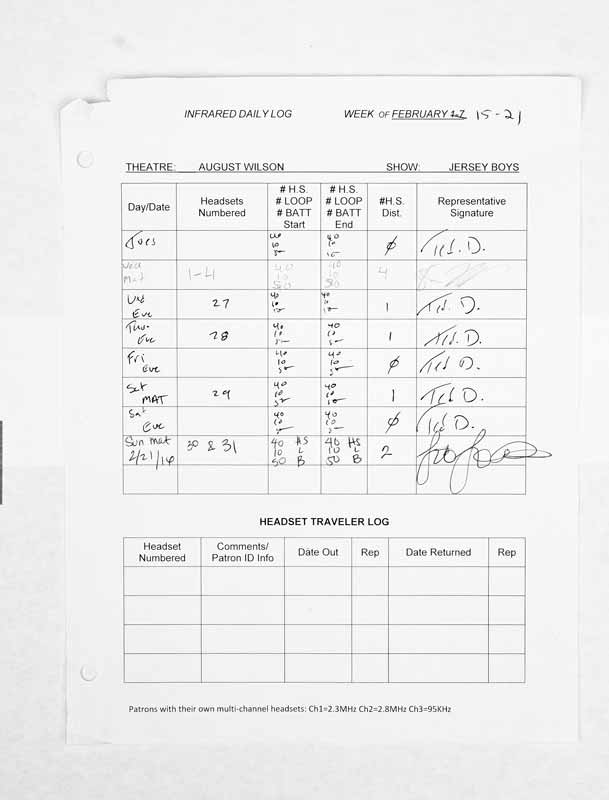 INFRARED DAILY LOG WEEK OF FEBRUARY 15-21
THEATRE: AUGUST WILSON SHOW: JERSEY BOYS
Day/Date
Headsets
Numbered
# H.S.
# LOOP
# BATT
Start
# H.S.
# LOOP
# BATT
End
#H.S.
Dist.
Representative
Signature
Tues
40
10
50
40
10
50
ø
Ted. D.
Wed
Mat
1-4
40
10
50
40
10
50
4
Wed
Eve
27
40
10
50
40
10
50
1
Ted. D.
Thu.
Eve
28
40
10
50
40
10
50
1
Ted. D.
Fri
Eve
40
10
50
40
10
50
ø
Ted D.
Sat
MAT
29
40
10
50
40
10
50
1
Ted D.
Sat
Eve
40
10
50
40
10
50
ø
Ted D.
Sun mat
2/21/16
30 & 31
40 HS
10 L
50 B
40 HS
10 L
50 B
2
HEADSET TRAVELER LOG
Headset
Numbered
Comments/
Patron ID Info
Date Out
Rep
Date Returned
Rep
Patrons with their own multi-channel headsets: Ch1=2.3MHz Ch2=2.8MHz Ch3=95KHz